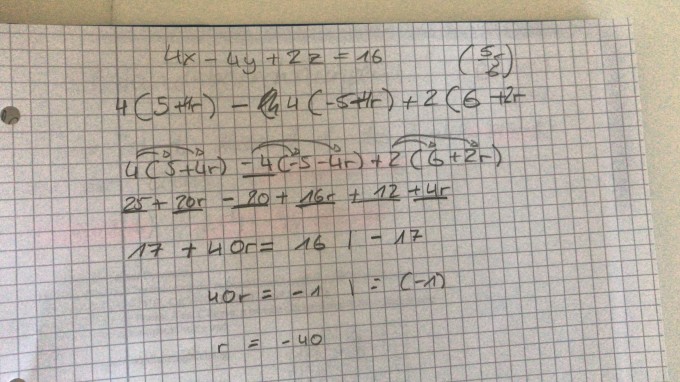 4x - 4y + 2z = 16 (5 -5 6)
4(5+4r) - 4(-5-4r) + 2(6+2r
4(5+4r) - 4(-5-4r) + 2(6+2r)
25 + 20r - 20 + 16r + 12 + 4r
17 + 40r = 16 | - 17
40r = -1 | = (-1)
r = -40